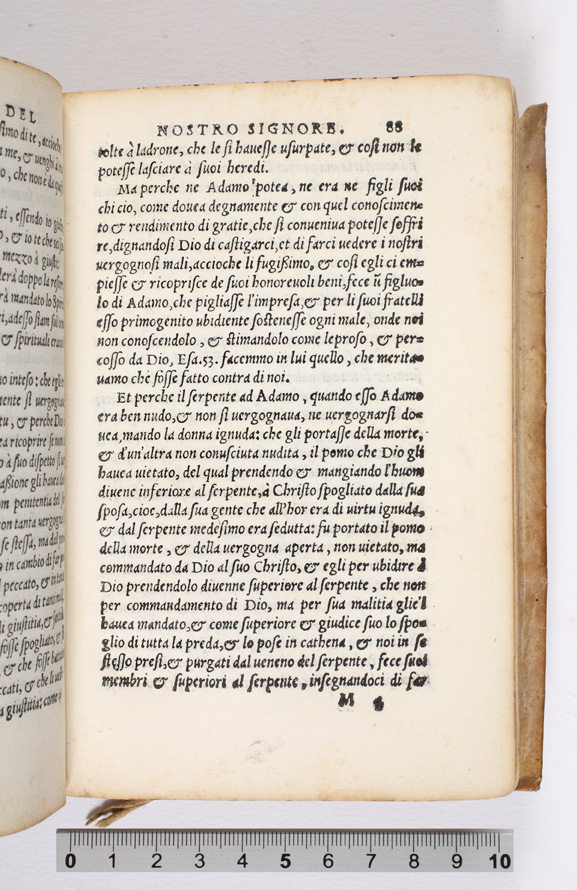 DEL
NOSTRO SIGNORE. 88
tolte à ladrone, che le si hauesse usurpate, & cosi non le
potesse lasciare à suoi heredi.
Ma perche ne Adamo potea, ne era ne figli suoi
chi cio, come douea degnamente & con quel conoscimen=
to & rendimento di gratie, che si conueniua potesse soffri
re, dignandosi Dio di castigarci, et di farci uedere i nostri
uergognosi mali, accioche li fugißimo, & cosi egli ci em=
piesse & ricoprisce de suoi honoreuoli beni, fece ũ figluo=
lo di Adamo, che pigliasse l'impresa, & per li suoi fratelli
esso primogenito ubidiente sostenesse ogni male, onde noi
non conoscendolo, & stimandolo come leproso, & per=
cosso da Dio, Esa.53. facemmo in lui quello, che merita=
uamo che fosse fatto contra di noi.
Et perche il serpente ad Adamo, quando esso Adamo
era ben nudo, & non si uergognaua, ne uergognarsi do=
uea, mando la donna ignuda: che gli portasse della morte,
& d'un'altra non conusciuta nudita, il pomo che Dio gli
hauea uietato, del qual prendendo & mangiando l'huom
diuene inferiore al serpente, à Christo spogliato dalla sua
sposa, cioe, dalla sua gente che all'hor era di uirtu ignuda,
& dal serpente medesimo era sedutta: fu portato il pomo
della morte, & della uergogna aperta, non uietato, ma
commandato da Dio al suo Christo, & egli per ubidire à
Dio prendendolo diuenne superiore al serpente, che non
per commandamento di Dio, ma per sua malitia glie'l
hauea mandato, & come superiore & giudice suo lo spo=
glio di tutta la preda, & lo pose in cathena, & noi in se
stesso presi, & purgati dal ueneno del serpente, fece suoi
membri & superiori al serpente, insegnandoci di far
M
0 1 2 3 4 5 6 7 8 9 10